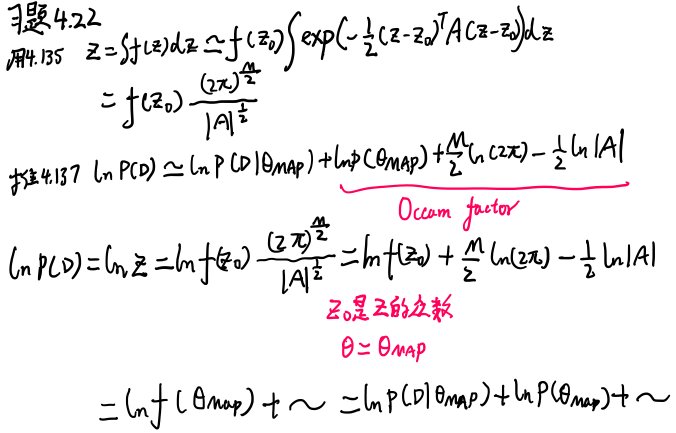 习题4.22
用4.135 Z=∫f(z)dz≃f(z₀)∫exp(-½(z-z₀)ᵀA(z-z₀))dz
=f(z₀) (2π)^{M/2} / |A|^{1/2}
推4.137 ln P(D)≃ln P(D|θMAP)+lnp(θMAP)+M/2 ln(2π)-½ln|A|
Occam factor
ln P(D)=ln Z=ln f(z₀) (2π)^{M/2} / |A|^{1/2} =ln f(z₀)+M/2 ln(2π)-½ln|A|
Z₀是Z的众数
θ≃θMAP
=ln f(θMAP)+~ =ln P(D|θMAP)+ln P(θMAP)+~